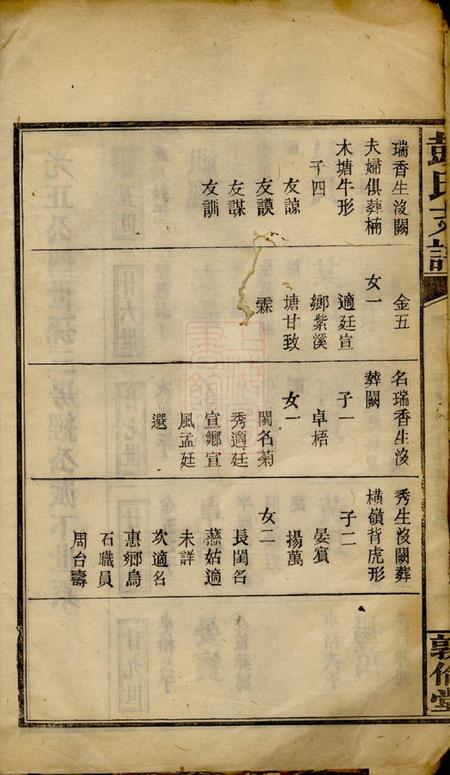 彭氏支譜
敦倫堂
瑞香生沒闕
夫婦俱葬楠
木塘牛形
子四
友諒
友謨
友謀
友訓
金五
女一
適廷宣
鄉紫溪
塘甘致
霖
名瑞香生沒
葬闕
子一
卓梧
女一
閨名菊
秀適廷
宣鄉宣
風孟廷
選
秀生沒闕葬
橫嶺背虎形
子二
晏賓
揚萬
女二
長閨名
慈姑適
未詳
次適名
惠鄉烏
石職員
周台壽